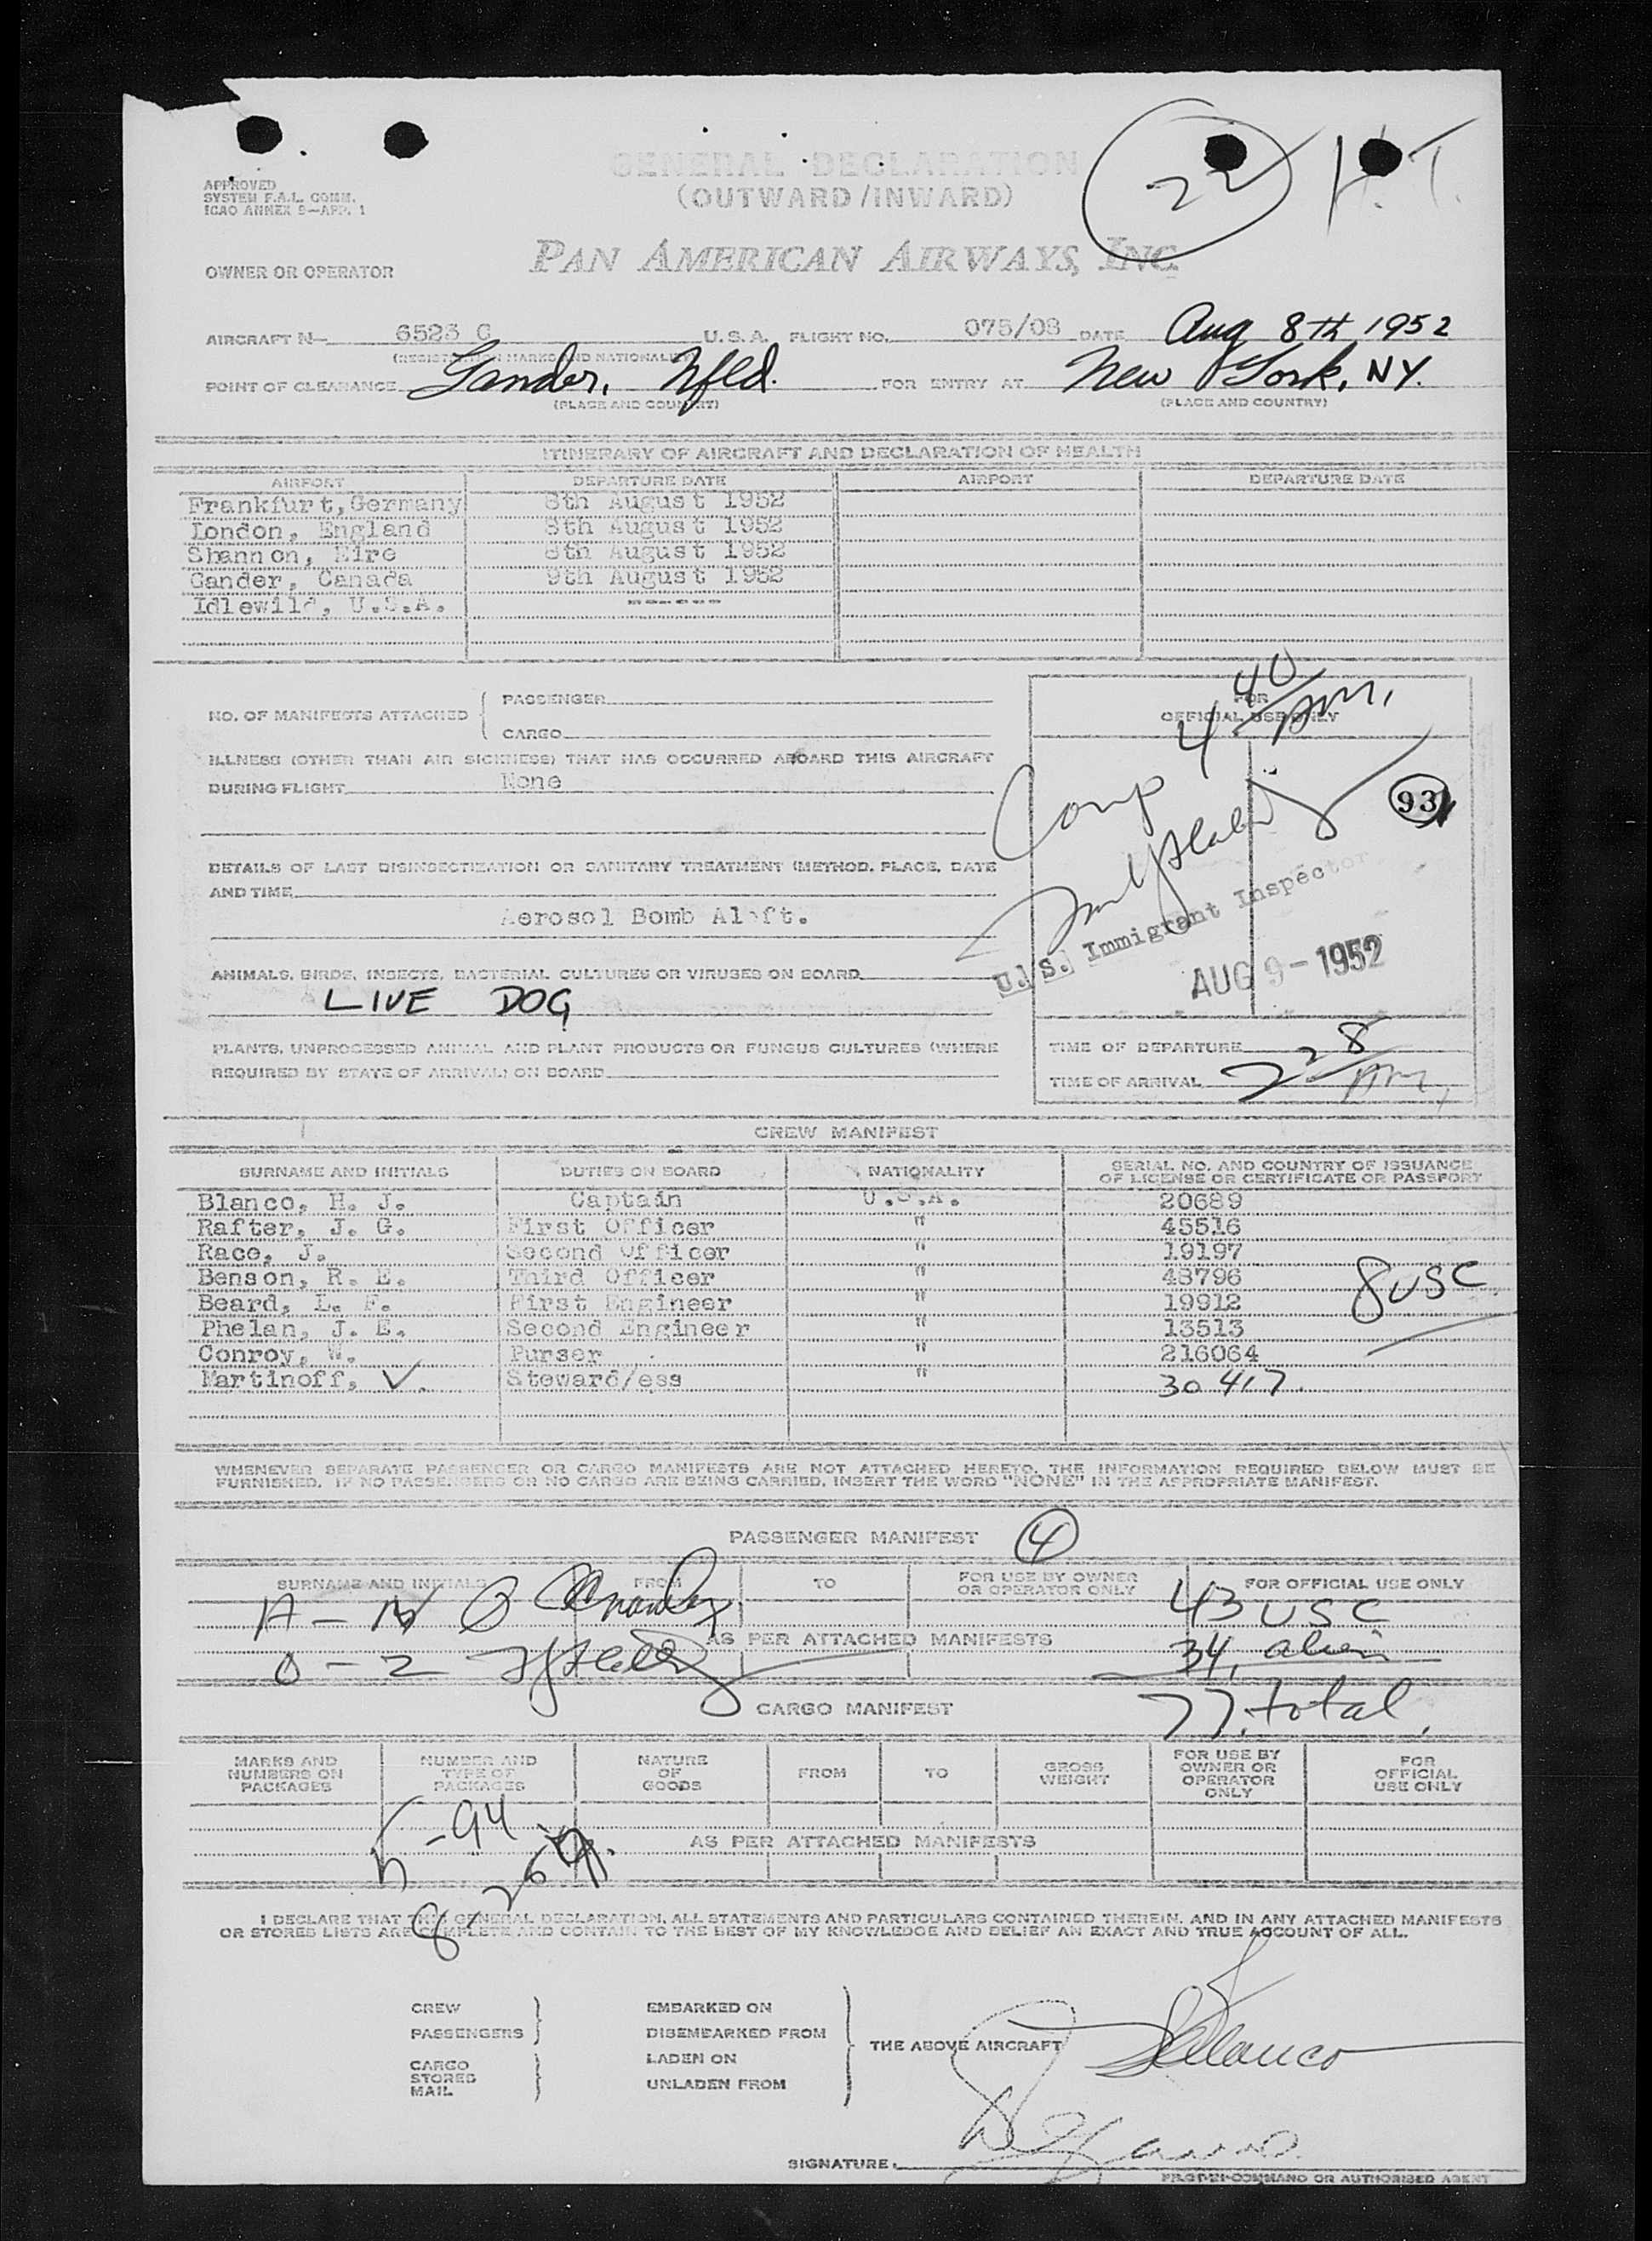 22 H.T.
GENERAL DECLARATION
(OUTWARD/INWARD)
APPROVED
SYSTEM F.A.L. COMM.
ICAO ANNEX 9-APP. 1
PAN AMERICAN AIRWAYS, INC.
OWNER OR OPERATOR
AIRCRAFT N- 6523 C U.S.A. FLIGHT NO. 075/08 DATE Aug 8th 1952
(REGISTRATION MARKS AND NATIONALITY)
POINT OF CLEARANCE Gander, Nfld. FOR ENTRY AT New York, NY.
(PLACE AND COUNTRY) (PLACE AND COUNTRY)
ITINERARY OF AIRCRAFT AND DECLARATION OF HEALTH
AIRPORT DEPARTURE DATE AIRPORT DEPARTURE DATE
Frankfurt, Germany 8th August 1952
London, England 8th August 1952
Shannon, Eire 8th August 1952
Gander, Canada 9th August 1952
Idlewild, U.S.A. ------
NO. OF MANIFESTS ATTACHED { PASSENGER
CARGO
ILLNESS (OTHER THAN AIR SICKNESS) THAT HAS OCCURRED ABOARD THIS AIRCRAFT
DURING FLIGHT None
DETAILS OF LAST DISINSECTIZATION OR SANITARY TREATMENT (METHOD, PLACE, DATE
AND TIME
Aerosol Bomb Aloft.
ANIMALS, BIRDS, INSECTS, BACTERIAL CULTURES OR VIRUSES ON BOARD
LIVE DOG
PLANTS, UNPROCESSED ANIMAL AND PLANT PRODUCTS OR FUNGUS CULTURES (WHERE
REQUIRED BY STATE OF ARRIVAL) ON BOARD
FOR
OFFICIAL USE ONLY
Comp 4 40/pm.
93
U.S. Immigrant Inspector
AUG 9-1952
TIME OF DEPARTURE
TIME OF ARRIVAL 2 28/pm.
CREW MANIFEST
SURNAME AND INITIALS DUTIES ON BOARD NATIONALITY SERIAL NO. AND COUNTRY OF ISSUANCE
OF LICENSE OR CERTIFICATE OR PASSPORT
Blanco, H. J. Captain U.S.A. 20689
Rafter, J. G. First Officer " 45516
Race, J. Second Officer " 19197
Benson, R. E. Third Officer " 48796
Beard, L. F. First Engineer " 19912
Phelan, J. E. Second Engineer " 13513
Conroy, W. Purser " 216064
Martinoff, V. Steward/ess " 30417
8 USC
WHENEVER SEPARATE PASSENGER OR CARGO MANIFESTS ARE NOT ATTACHED HERETO, THE INFORMATION REQUIRED BELOW MUST BE
FURNISHED. IF NO PASSENGERS OR NO CARGO ARE BEING CARRIED, INSERT THE WORD "NONE" IN THE APPROPRIATE MANIFEST.
PASSENGER MANIFEST 4
SURNAME AND INITIALS FROM TO FOR USE BY OWNER
OR OPERATOR ONLY FOR OFFICIAL USE ONLY
A - N 43 USC
AS PER ATTACHED MANIFESTS
O - Z 34, alien
77, total.
CARGO MANIFEST
MARKS AND
NUMBERS ON
PACKAGES
NUMBER AND
TYPE OF
PACKAGES
NATURE
OF
GOODS
FROM
TO
GROSS
WEIGHT
FOR USE BY
OWNER OR
OPERATOR
ONLY
FOR
OFFICIAL
USE ONLY
-94
AS PER ATTACHED MANIFESTS
I DECLARE THAT THIS GENERAL DECLARATION, ALL STATEMENTS AND PARTICULARS CONTAINED THEREIN, AND IN ANY ATTACHED MANIFESTS
OR STORES LISTS ARE COMPLETE AND CONTAIN TO THE BEST OF MY KNOWLEDGE AND BELIEF AN EXACT AND TRUE ACCOUNT OF ALL.
CREW
PASSENGERS
CARGO
STORES
MAIL
EMBARKED ON
DISEMBARKED FROM
LADEN ON
UNLADEN FROM
THE ABOVE AIRCRAFT
Blanco
SIGNATURE
PILOT-IN-COMMAND OR AUTHORISED AGENT